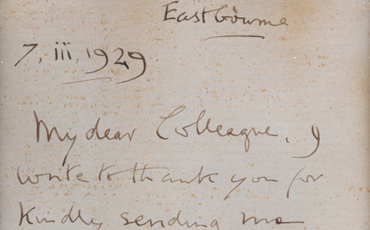 Eastbourne
7, iii, 1929
My dear Colleague, I
write to thank you for
kindly sending me